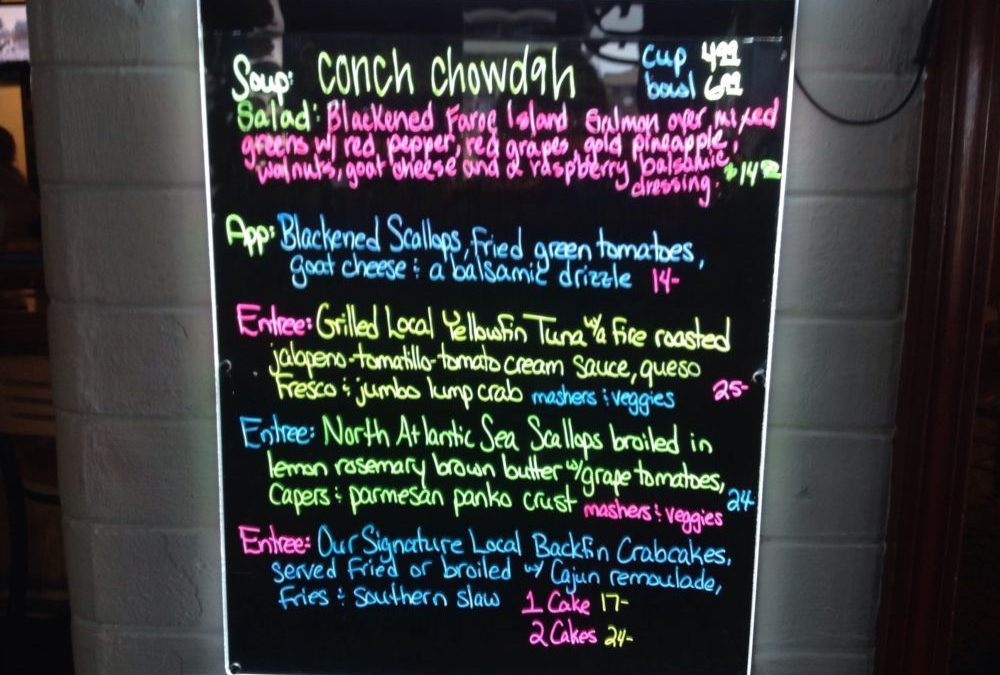 Soup: conch chowdah cup 4.99
bowl 6.99
Salad: Blackened Faroe Island Salmon over mixed
greens w/ red pepper, red grapes, gold pineapple,
walnuts, goat cheese and a raspberry balsamic
dressing. $14
App: Blackened Scallops, fried green tomatoes,
goat cheese & a balsamic drizzle 14-
Entree: Grilled Local Yellowfin Tuna w/ a fire roasted
jalapeno-tomatillo-tomato cream sauce, queso
fresco & jumbo lump crab mashers & veggies 25-
Entree: North Atlantic Sea Scallops broiled in
lemon rosemary brown butter w/ grape tomatoes,
capers & parmesan panko crust mashers & veggies 24-
Entree: Our Signature Local Backfin Crabcakes,
served fried or broiled w/ Cajun remoulade,
fries & southern slaw 1 Cake 17-
2 Cakes 24-